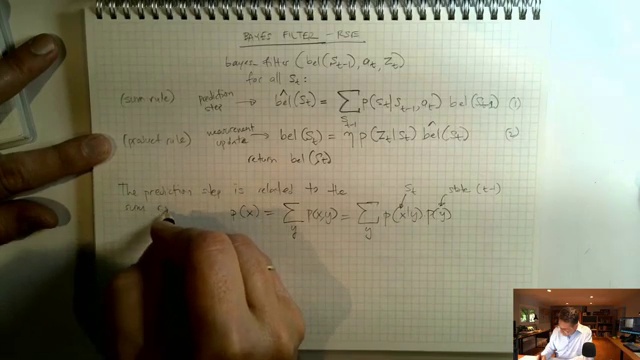 BAYES FILTER - RSE
bayes filter (bel(S_{t-1}), a_t, z_t)
for all S_t:
(sum rule) prediction step → \hat{bel}(S_t) = ∑_{S_{t-1}} p(S_t | S_{t-1}, a_t) bel(S_{t-1}) (1)
(product rule) measurement update → bel(S_t) = η p(z_t | S_t) \hat{bel}(S_t) (2)
return bel(S_t)
The prediction step is related to the
sum
S_t state (t-1)
p(x) = ∑_y p(x,y) = ∑_y p(x|y) p(y)